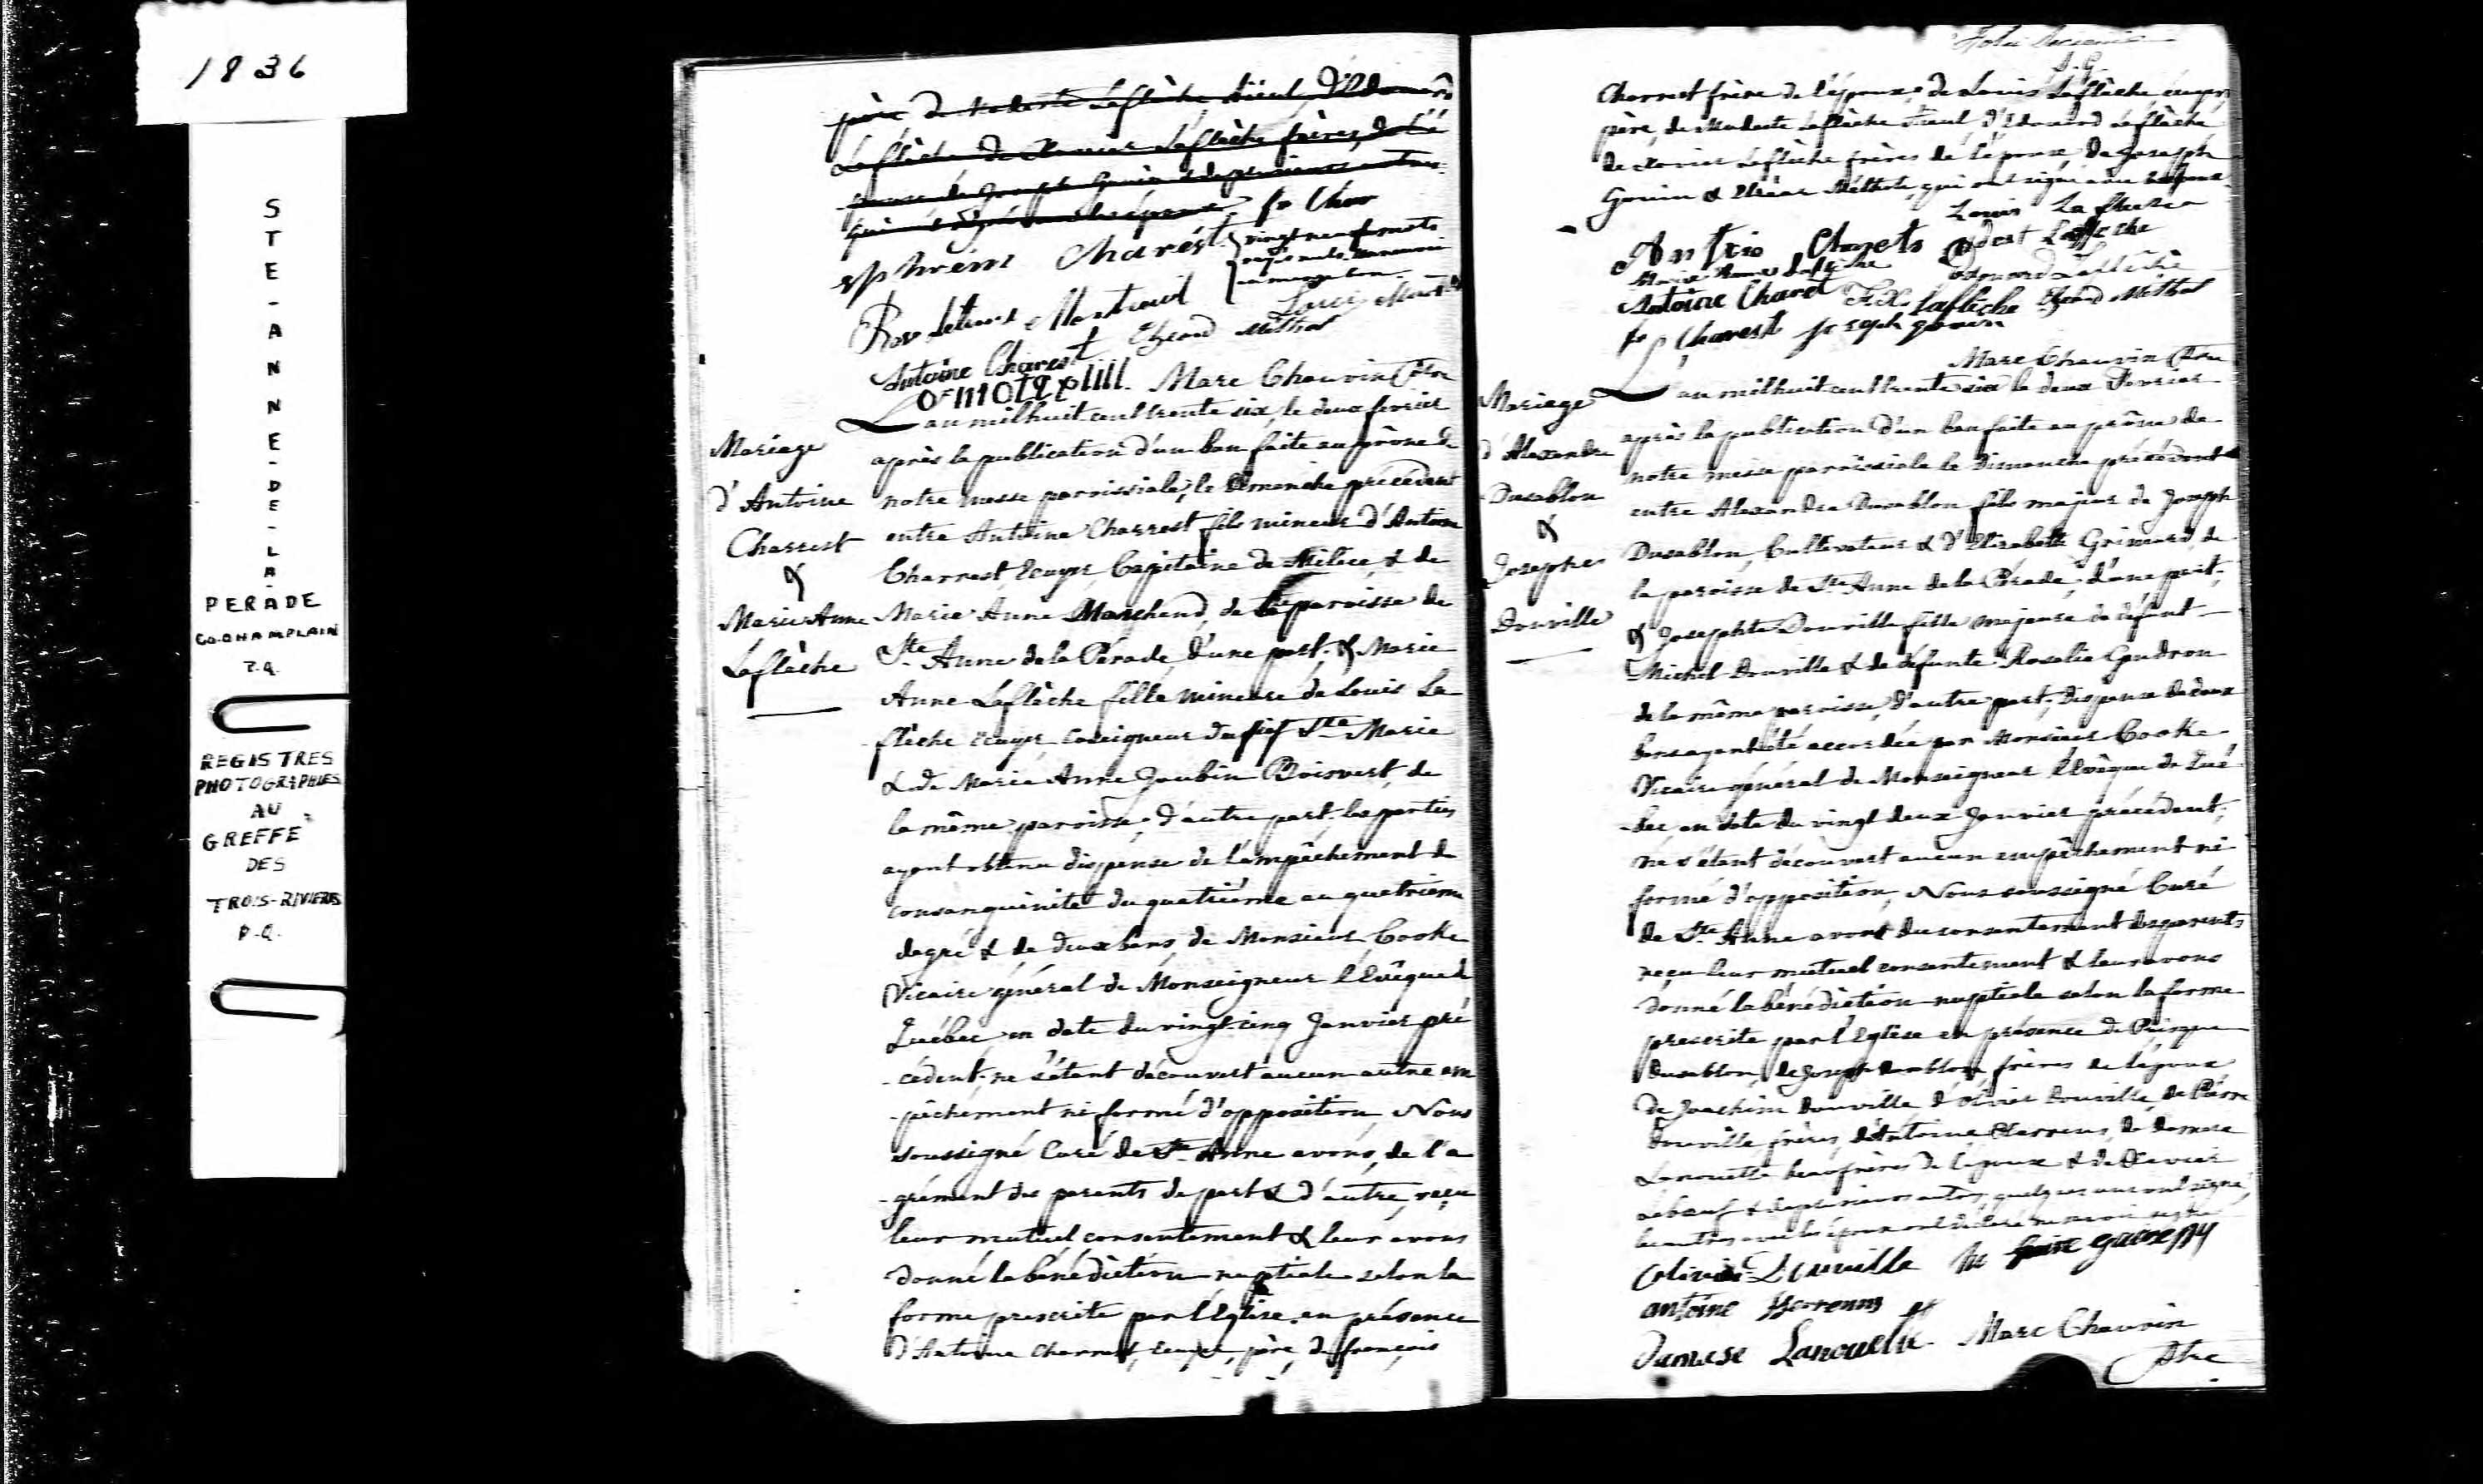 1836
S
T
E
-
A
N
N
E
-
D
E
-
L
A
-
PERADE
CO. CHAMPLAIN
P.Q.
REGISTRES
PHOTOGRAPHIES
AU
GREFFE
DES
TROIS-RIVIERES
P.Q.
père de Modeste Laflèche, aïeul, d'Edouard
Laflèche de Xavier Laflèche frères, de l'é
pouse de Joseph Gouin & de plusieurs autres
qui ont signé avec les époux fr Char
Ephrem Charést
vingt neuf mots
rayés nuls
en marge bon
Montreuil Louis
Antoine Charest Ezead Méthot
Marc Chauvin Ptre
Mariage
d'Antoine
Charrest
&
Marie Anne
Laflèche
L'an mil huit cent trente six, le deux fevrier
après la publication d'un ban faite au prône de
notre messe paroissiale, le dimanche précédent
entre Antoine Charrest fils mineur d'Antoine
Charrest Ecuyer, Capitaine de Milice, & de
Marie Anne Marchand, de la paroisse de
Ste Anne de la Pérade, d'une part; & Marie
Anne Laflèche fille mineure de Louis La
flèche Ecuyer Coseigneur du fief Ste Marie
& de Marie Anne Joubin Boisvert, de
la même paroisse, d'autre part, les parties
ayant obtenu dispense de l'empêchement de
consanguinité du quatrième au quatrième
degré & de deux bans, de Monsieur Cooke
Vicaire général de Monseigneur l'Evêque de
Québec, en date du vingt-cinq Janvier pré
-cédent; ne s'étant découvert aucun autre em
-pêchement ni formé d'opposition, Nous
soussigné Curé de Ste Anne avons, de l'a
-grément des parents de part & d'autre, reçu
leur mutuel consentement & leur avons
donné la bénédiction nuptiale selon la
forme prescrite par l'Eglise en présence
d'Antoine Charrest, Ecuyer, père, de françois
Charrest frère de l'époux, de Louis Laflèche, écuyer,
père, de Modeste Laflèche aïeul, d'Edouard Laflèche
de Xavier Laflèche frères de l'épouse, de Joseph
Gouin & Méthot, qui ont signé avec les époux
Louis Laflèche
Marie Anne Laflèche Edouard Laflèche
Antoine Charet F.X. Laflèche Ezead Méthot
fr Charest joseph gouin
Marc Chauvin Ptre
Mariage
d'Alexandre
Dusablon
&
Josephte
Douville
L'an mil huit cent trente six le deux Fevrier
après la publication d'un ban faite au prône de
notre messe paroissiale le Dimanche précédent
entre Alexandre Dusablon fils majeur de Joseph
Dusablon, Cultivateur & d'Elizabeth Grimard, de
la paroisse de Ste Anne de la Pérade, d'une part;
& Josephte Douville fille majeure de défunt
Michel Douville & de défunte Rosalie Gendron
de la même paroisse, d'autre part; dispense de deux
bans ayant été accordée par Monsieur Cooke
Vicaire général de Monseigneur l'Evêque de Qué
-bec, en date du vingt deux Janvier précédent;
ne s'étant découvert aucun empêchement ni
formé d'opposition, Nous soussigné Curé
de Ste Anne avons du consentement des parents
reçu leur mutuel consentement & leur avons
donné la bénédiction nuptiale selon la forme
prescrite par l'Eglise en présence de
Dusablon, de Joseph Dusablon, frères de l'époux,
de Joachim Douville d'Olivier Douville, de Pierre
Douville frères, d'Antoine de Damase
Lanouette beaufrères de l'épouse & de Xavier
& de plusieurs autres, quelques uns ont signé,
les autres avec les époux ont déclaré ne savoir signer
Olivier Douville
antoine
Damase Lanouette Marc Chauvin
Ptre